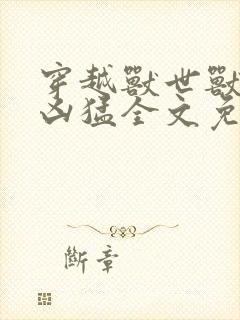 穿越獸世獸
凶猛全文免
斷章